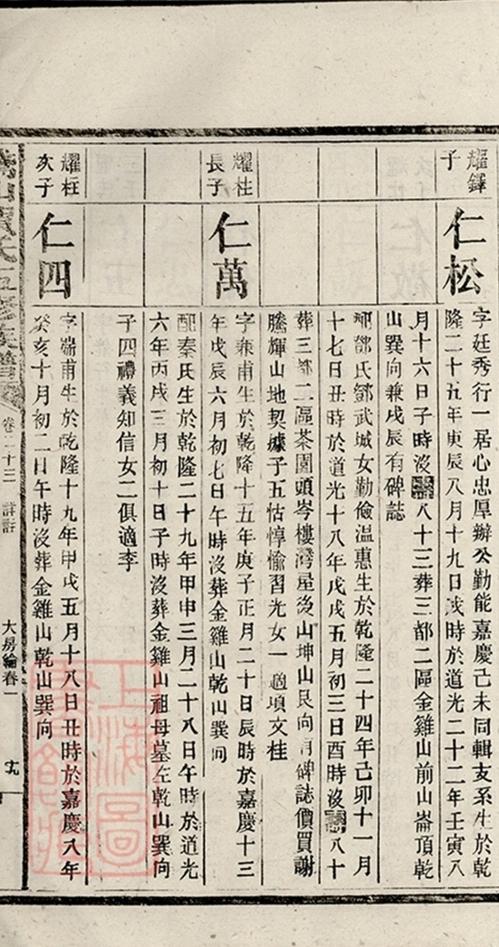 耀鐸
子
仁松
字廷秀行一居心忠厚辦公勤能嘉慶己未同輯支系生於乾
隆二十五年庚辰八月十九日戌時於道光二十二年壬寅八
月十六日子時沒壽八十三葬三都二區金雞山前山崙頂乾
山巽向兼戌辰有碑誌
配鄒氏鄒武城女勤儉溫惠生於乾隆二十四年己卯十一月
十七日丑時於道光十八年戊戌五月初三日酉時沒壽八十
葬三都二區茶園頭岑樓灣屋後山坤山艮向有碑誌價買謝
騰輝山地契據子五怙惇愉習光女一適項文桂
耀柱
長子
仁萬
字乘甫生於乾隆十五年庚子正月二十日辰時於嘉慶十三
年戊辰六月初七日午時沒葬金雞山乾山巽向
配秦氏生於乾隆二十九年甲申三月二十八日午時於道光
六年丙戌三月初十日子時沒葬金雞山祖母墓左乾山巽向
子四禮義知信女二俱適李
耀柱
次子
仁四
字崙甫生於乾隆十九年甲戌五月十八日丑時於嘉慶八年
癸亥十月初二日午時沒葬金雞山乾山巽向
氏五修族譜
卷二十三
大房綸春一
十九
上海圖